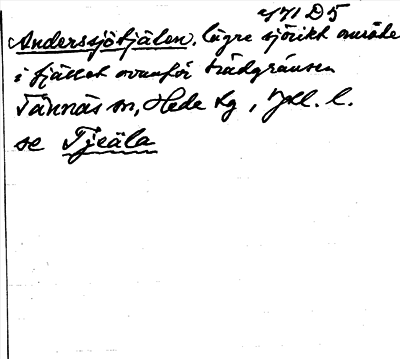 171 D5
Anderssjötjälen, lägre sjörikt område
i fjället ovanför trädgränsen
Tännäs sn, Hede tg, Jtl. l.
se Tjeäla